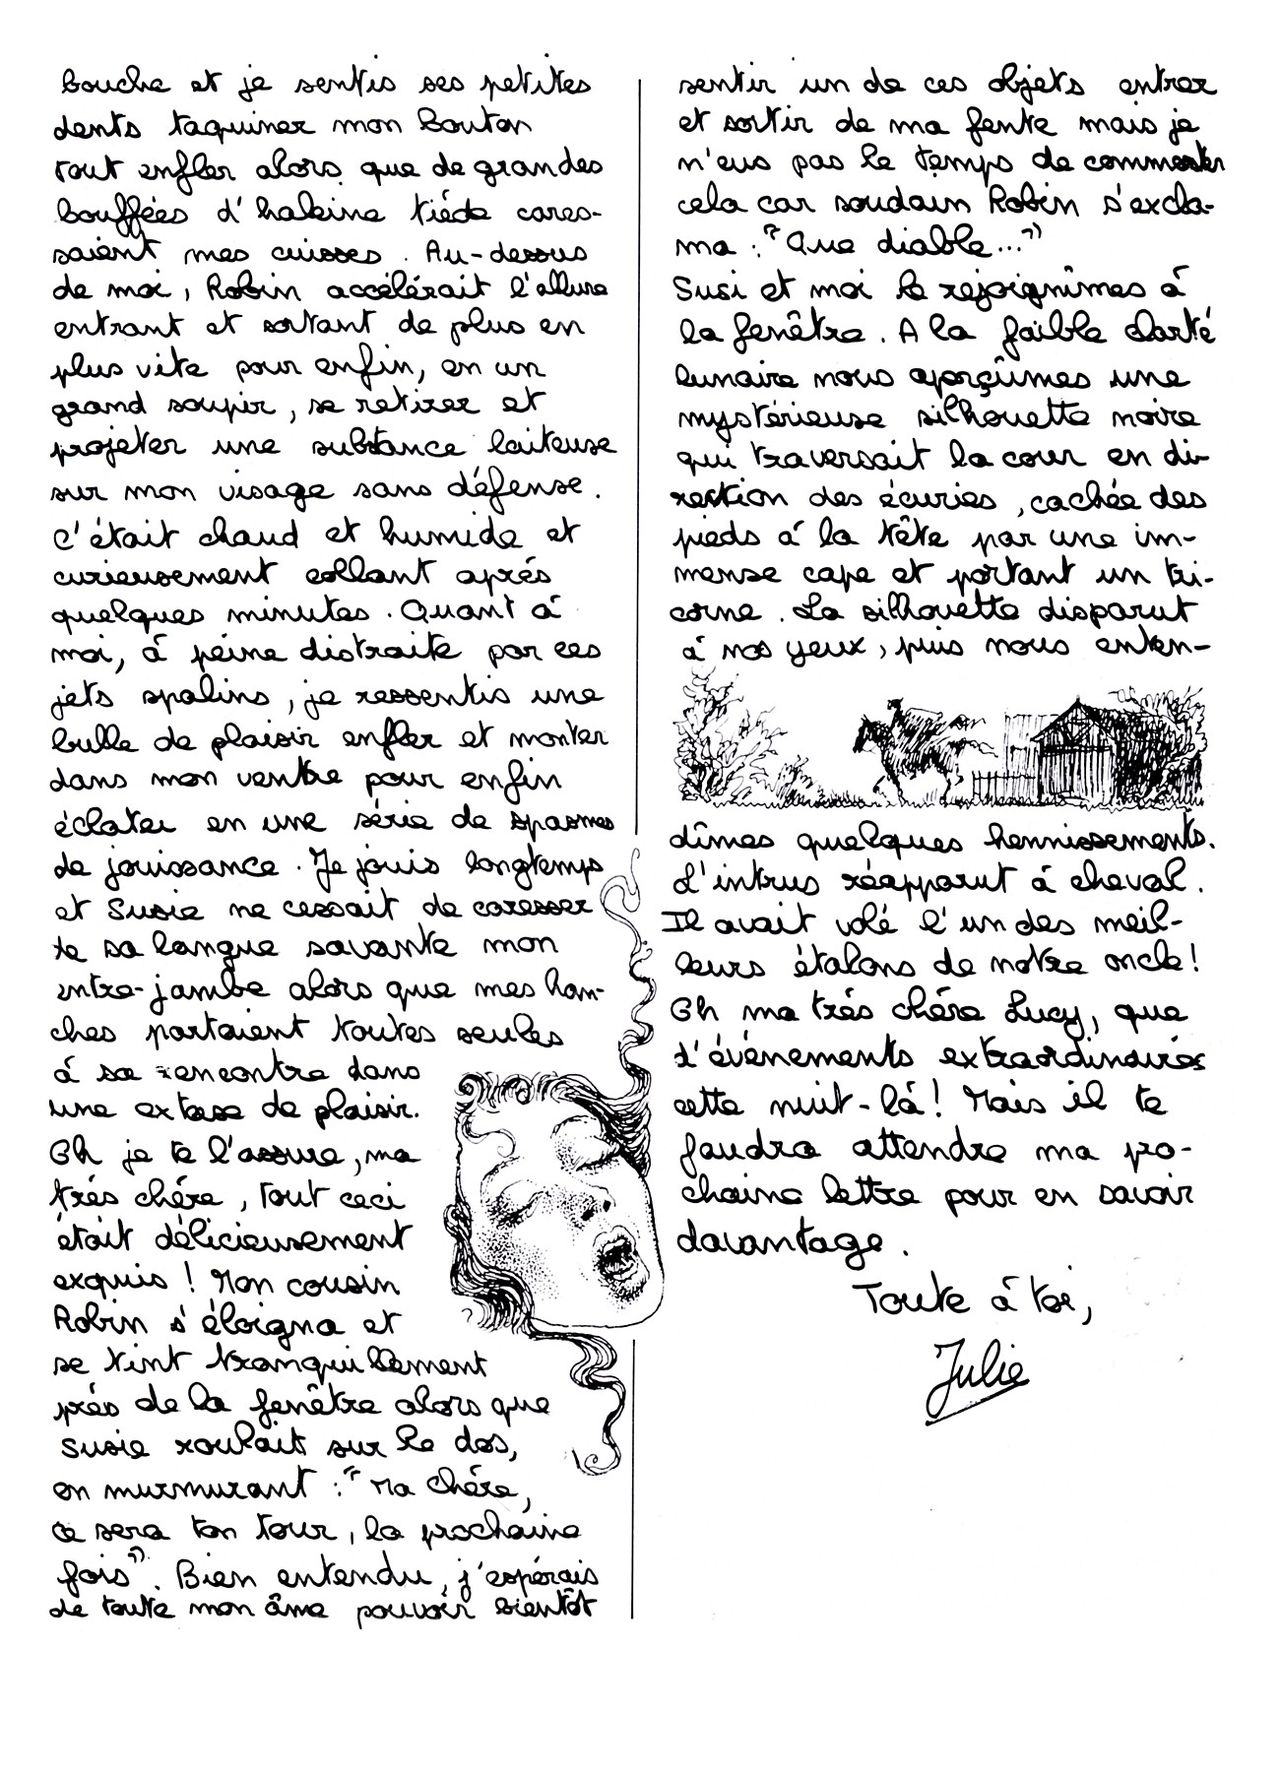 bouche et je sentis ses petites
dents taquiner mon bouton
tout enfler alors que de grandes
bouffées d'haleine tiède cares-
saient mes cuisses. Au-dessus
de moi, Robin accélérait l'allure
entrant et sortant de plus en
plus vite pour enfin, en un
grand soupir, se retirer et
projeter une substance laiteuse
sur mon visage sans défense.
C'était chaud et humide et
curieusement collant après
quelques minutes. Quant à
moi, à peine distraite par ces
jets opalins, je ressentis une
bulle de plaisir enfler et monter
dans mon ventre pour enfin
éclater en une série de spasmes
de jouissance. Je jouis longtemps
et Susie ne cessait de caresser
de sa langue savante mon
entre-jambe alors que mes han-
ches partaient toutes seules
à sa rencontre dans
une extase de plaisir.
Oh je te l'assure, ma
très chère, tout ceci
était délicieusement
exquis ! Mon cousin
Robin s'éloigna et
se tint tranquillement
près de la fenêtre alors que
Susie roulait sur le dos,
en murmurant : "Ma chère,
ce sera ton tour, la prochaine
fois". Bien entendu, j'espérais
de toute mon âme pouvoir bientôt
sentir un de ces objets entrer
et sortir de ma fente mais je
n'eus pas le temps de commenter
cela car soudain Robin s'excla-
ma : "Que diable..."
Susi et moi le rejoignîmes à
la fenêtre. A la faible clarté
lunaire nous aperçûmes une
mystérieuse silhouette noire
qui traversait la cour en di-
rection des écuries, cachée des
pieds à la tête par une im-
mense cape et portant un tri-
corne. La silhouette disparut
à nos yeux, puis nous enten-
dîmes quelques hennissements.
L'intrus réapparut à cheval.
Il avait volé l'un des meil-
leurs étalons de notre oncle !
Oh ma très chère Lucy, que
d'évènements extraordinaires
cette nuit-là ! Mais il te
faudra attendre ma pro-
chaine lettre pour en savoir
davantage.
Toute à toi,
Julie